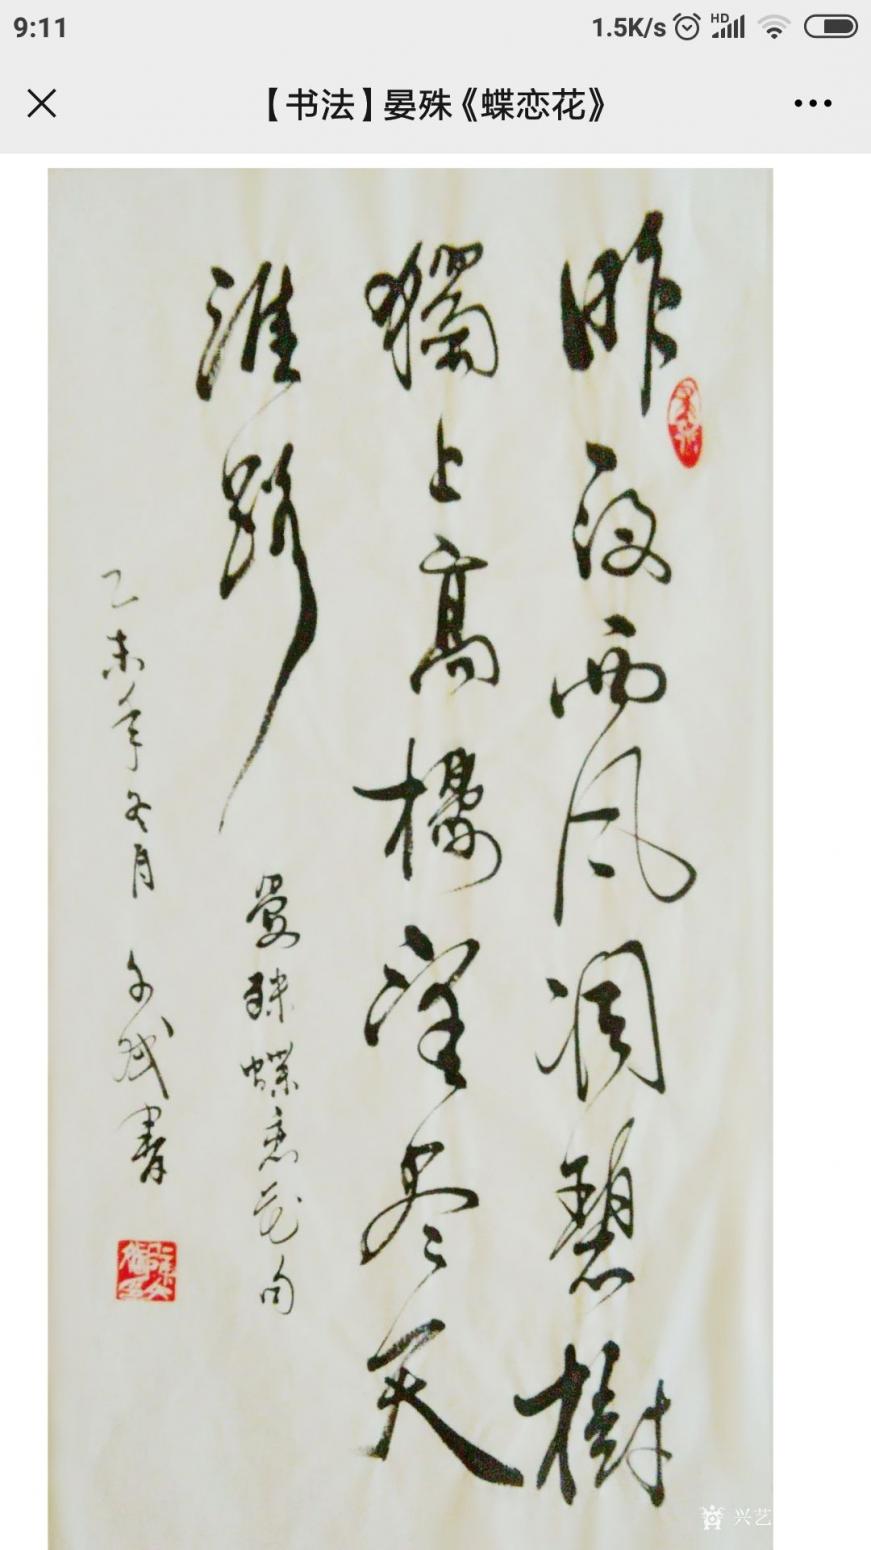 9:11
1.5K/s HD
【书法】晏殊《蝶恋花》
昨夜西风凋碧樹
獨上高樓望尽天
涯路
晏殊蝶恋花句
乙未年冬月 書
兴艺